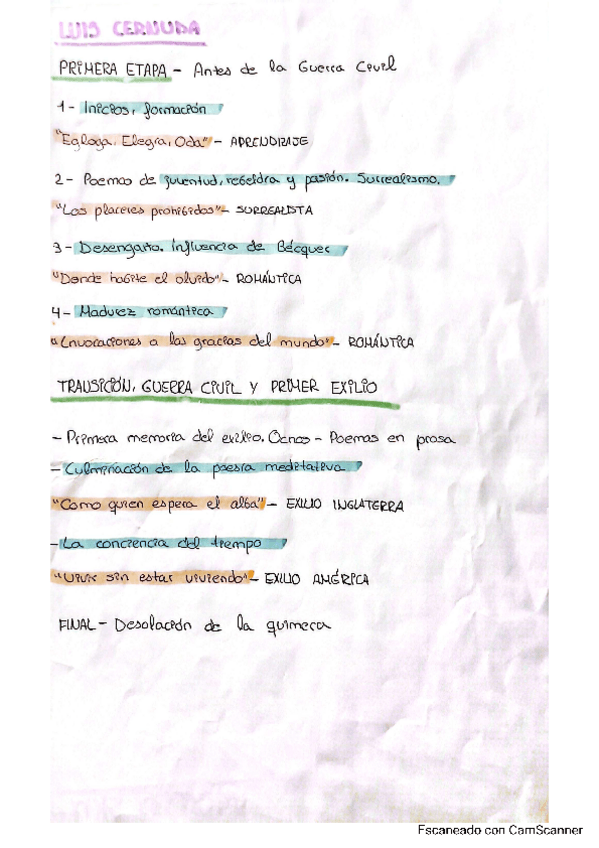 LUIS CERNUDA
PRIMERA ETAPA - Antes de la Guerra Civil
1- Inicios, formación
"Egloga, Elegía, Oda" - APRENDIZAJE
2- Poemas de juventud, rebeldía y pasión. Surrealismo.
"Los placeres prohibidos" - SURREALISTA
3- Desengaño. influencia de Bécquer
"Donde habite el olvido" - ROMÁNTICA
4- Madurez romántica
"Invocaciones a las gracias del mundo" - ROMÁNTICA
TRANSICIÓN, GUERRA CIVIL Y PRIMER EXILIO
- Primera memoria del exilio. Ocnos - Poemas en prosa
- Culminación de la poesía meditativa
"Como quien espera el alba" - EXILIO INGLATERRA
- La conciencia del tiempo
"Vivir sin estar viviendo" - EXILIO AMÉRICA
FINAL - Desolación de la quimera
Escaneado con CamScanner